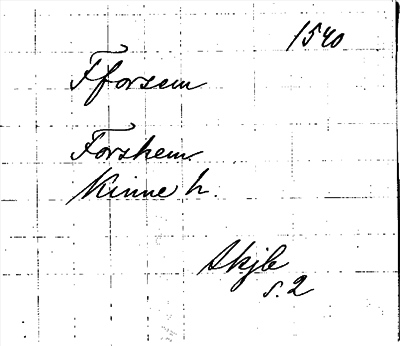 1540
Fforsem
Forshem
Kinne h.
Skjb
s. 2